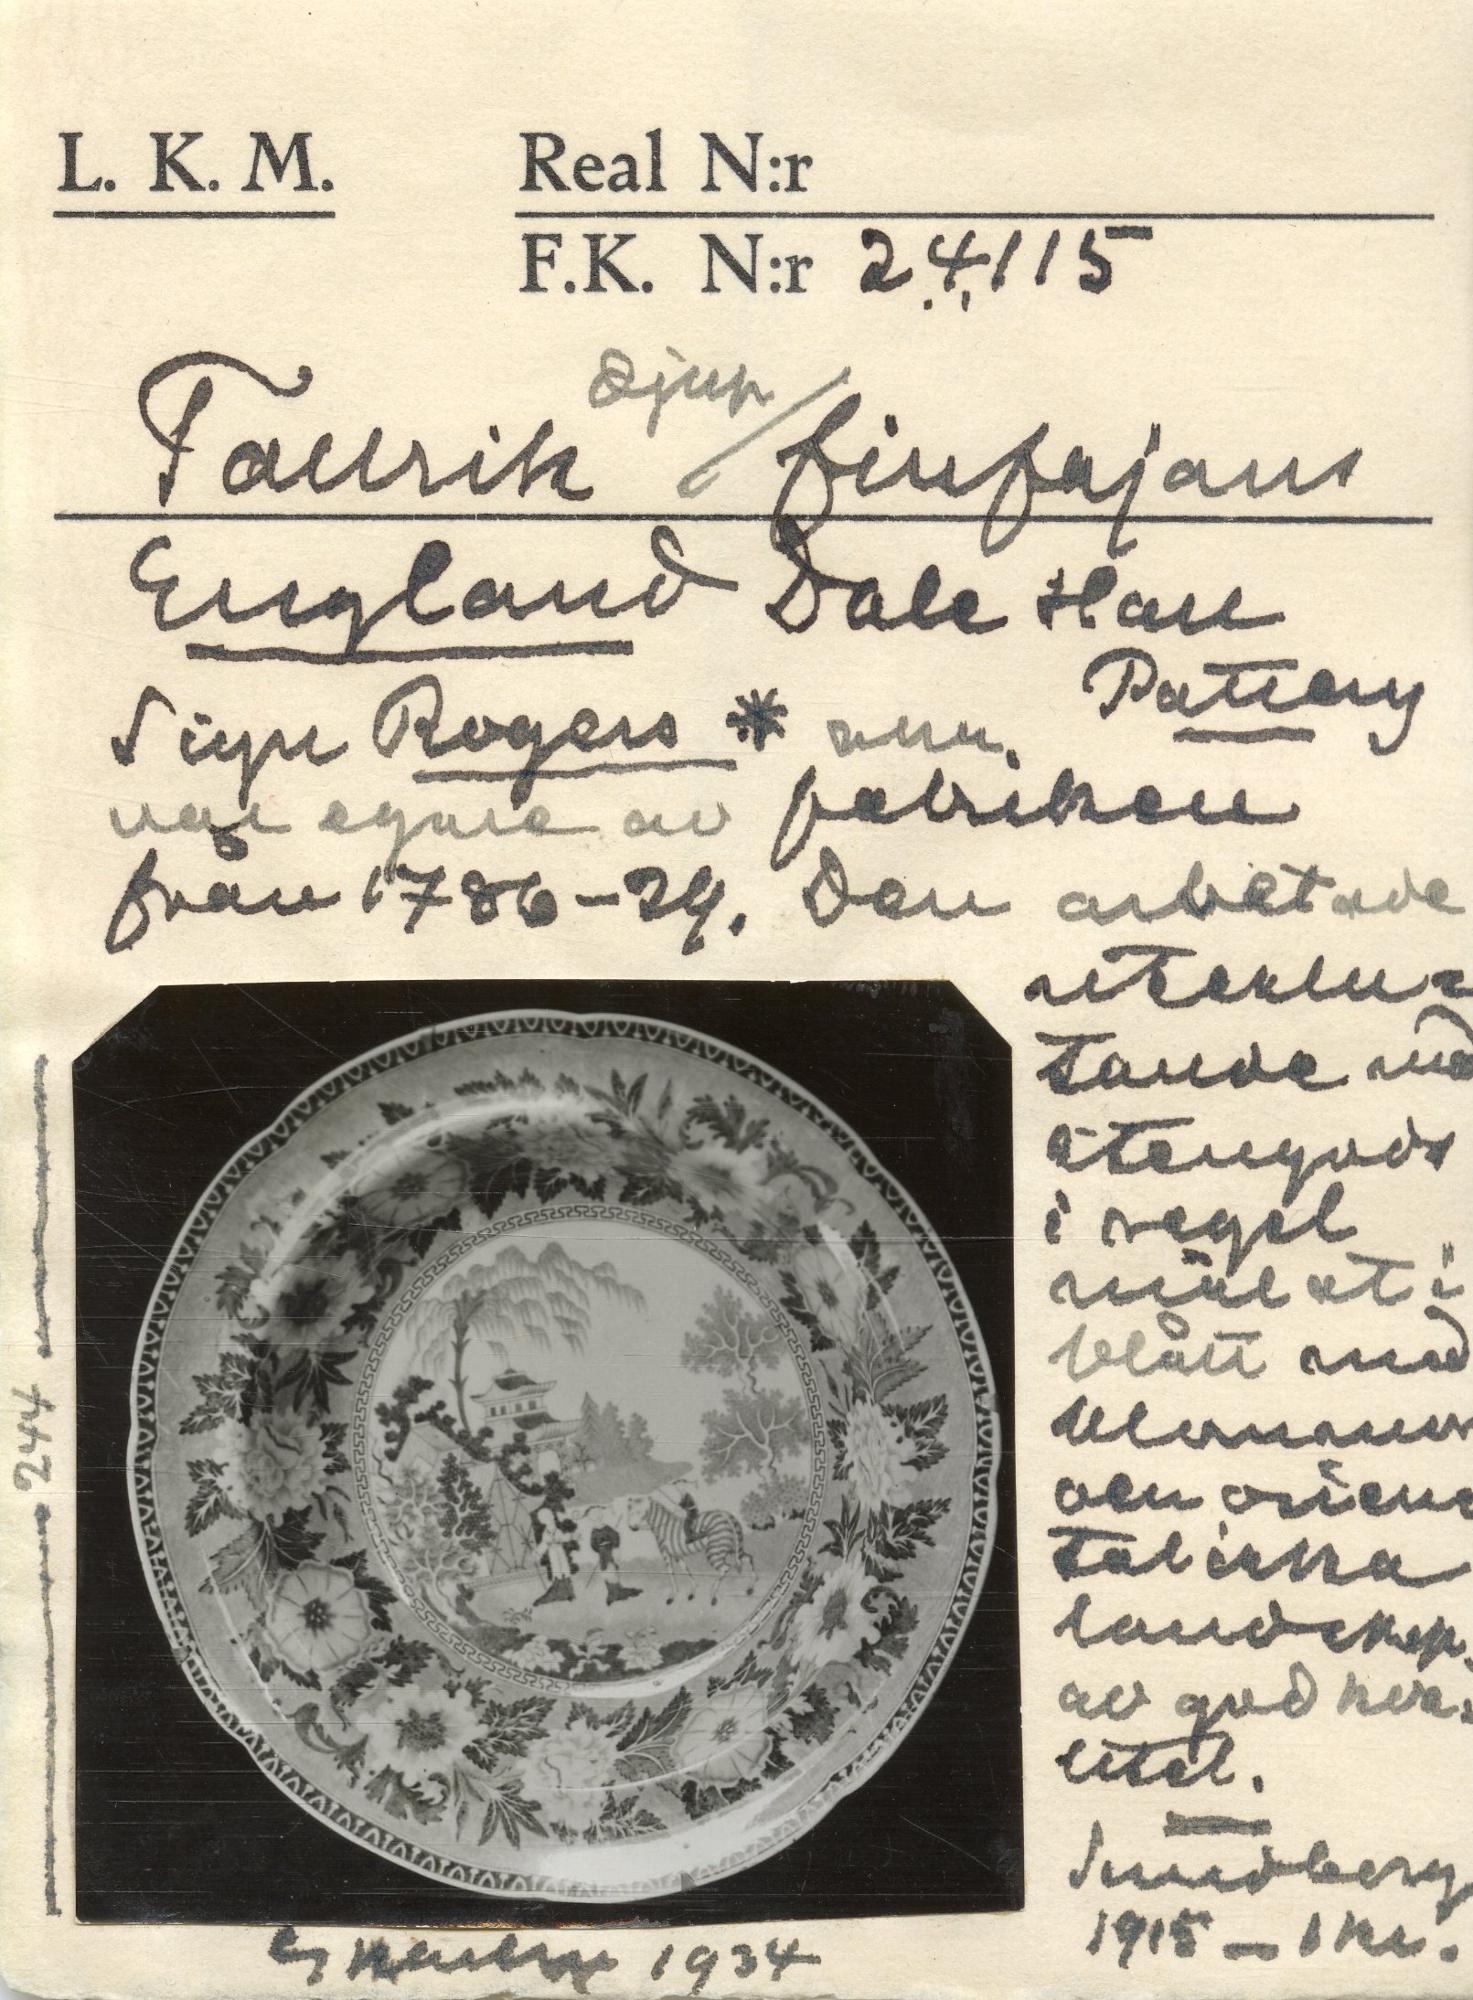 L. K. M. Real N:r
F.K. N:r 24115
djup
Tallrik / finfajans
England Dale Hall
Pottery
Sign Rogers *
var egare av fabriken
från 1786-29. Den arbetade
uteslu=
tande med
stengods
i regel
målat i
blått med
blommor
och orien=
taliska
landskap,
av god kva=
litet.
Sundberg
1915 - 1 kr.
244
1934